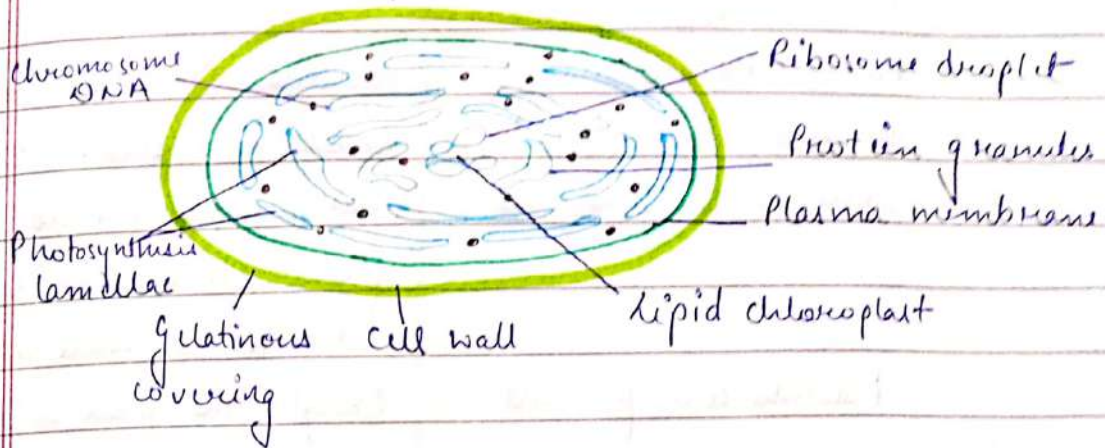 Chromosome
DNA
Ribosome droplet
Protein granules
Plasma membrane
Photosynthesis
lamellae
Gelatinous
covering
Cell wall
Lipid chloroplast